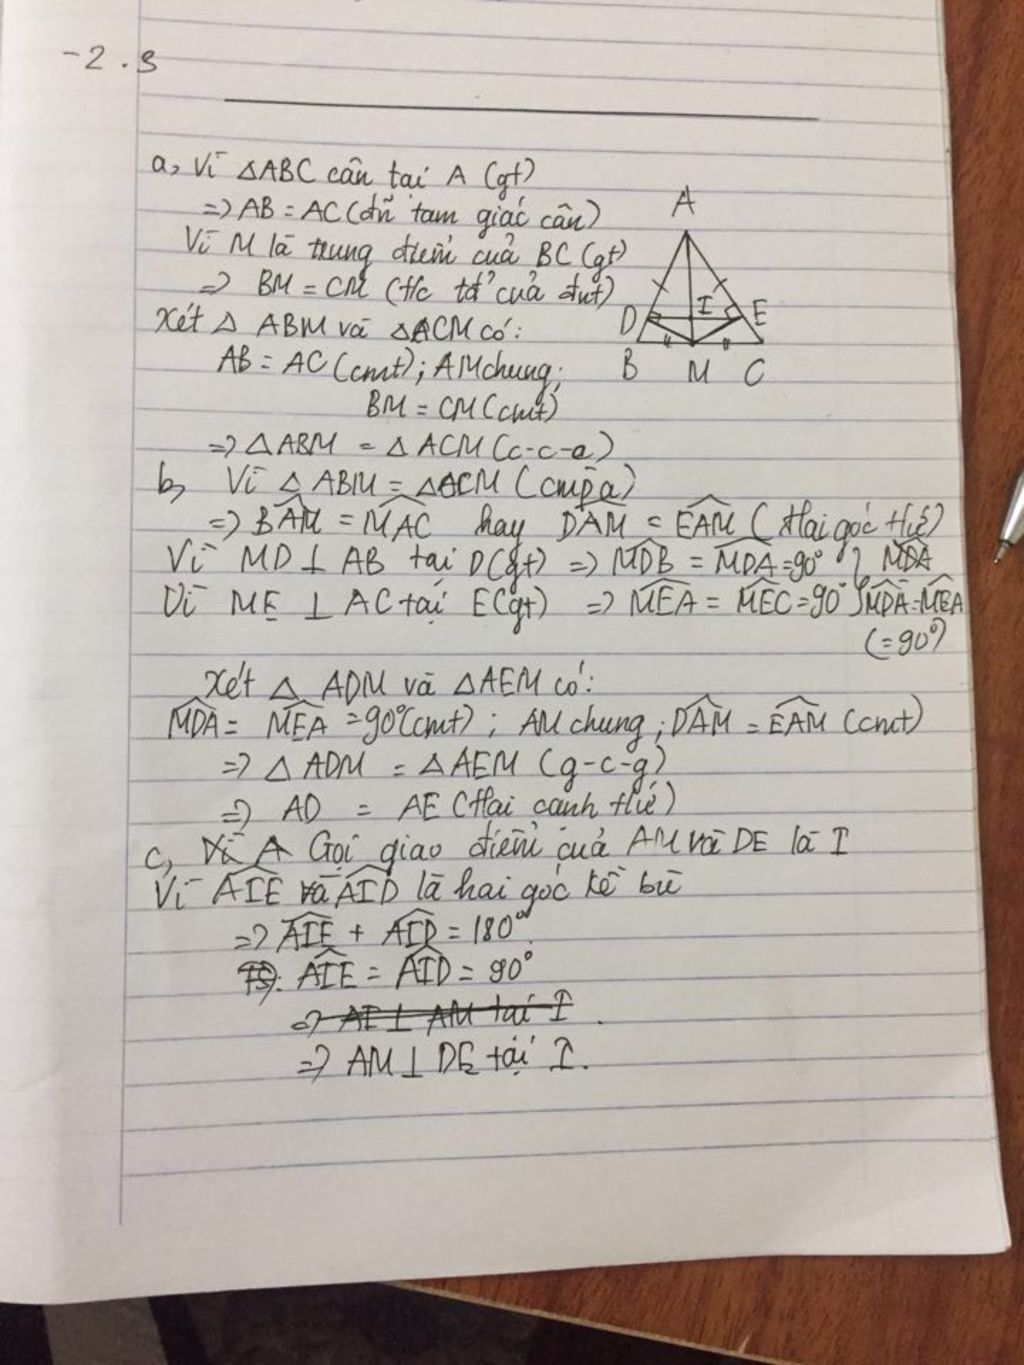 -2.3
a, Vì △ABC cân tại A (gt)
=> AB = AC (đ/n tam giác cân)
Vì M là trung điểm của BC (gt)
=> BM = CM (t/c tđ của đnt)
Xét △ ABM và △ACM có:
AB = AC (cmt); AM chung;
BM = CM (cmt)
=> △ABM = △ACM (c-c-c)
A
D
I
E
B M C
b, Vì △ABM = △ACM (cmpa)
=> \widehat{BAM} = \widehat{MAC} hay \widehat{DAM} = \widehat{EAM} (Hai góc t/ứ)
Vì MD ⊥ AB tại D (gt) => \widehat{MDB} = \widehat{MDA} = 90° } \widehat{MDA}
Vì ME ⊥ AC tại E (gt) => \widehat{MEA} = \widehat{MEC} = 90° } \widehat{MDA} = \widehat{MEA}
(=90°)
Xét △ ADM và △AEM có:
\widehat{MDA} = \widehat{MEA} = 90° (cmt); AM chung; \widehat{DAM} = \widehat{EAM} (cmt)
=> △ADM = △AEM (g-c-g)
=> AD = AE (Hai cạnh t/ứ)
c, Vì A Gọi giao điểm của AM và DE là I
Vì \widehat{AIE} và \widehat{AID} là hai góc kề bù
=> \widehat{AIE} + \widehat{AID} = 180°
\widehat{AIE} = \widehat{AID} = 90°
=> AI ⊥ AM tại I.
=> AM ⊥ DE tại I.